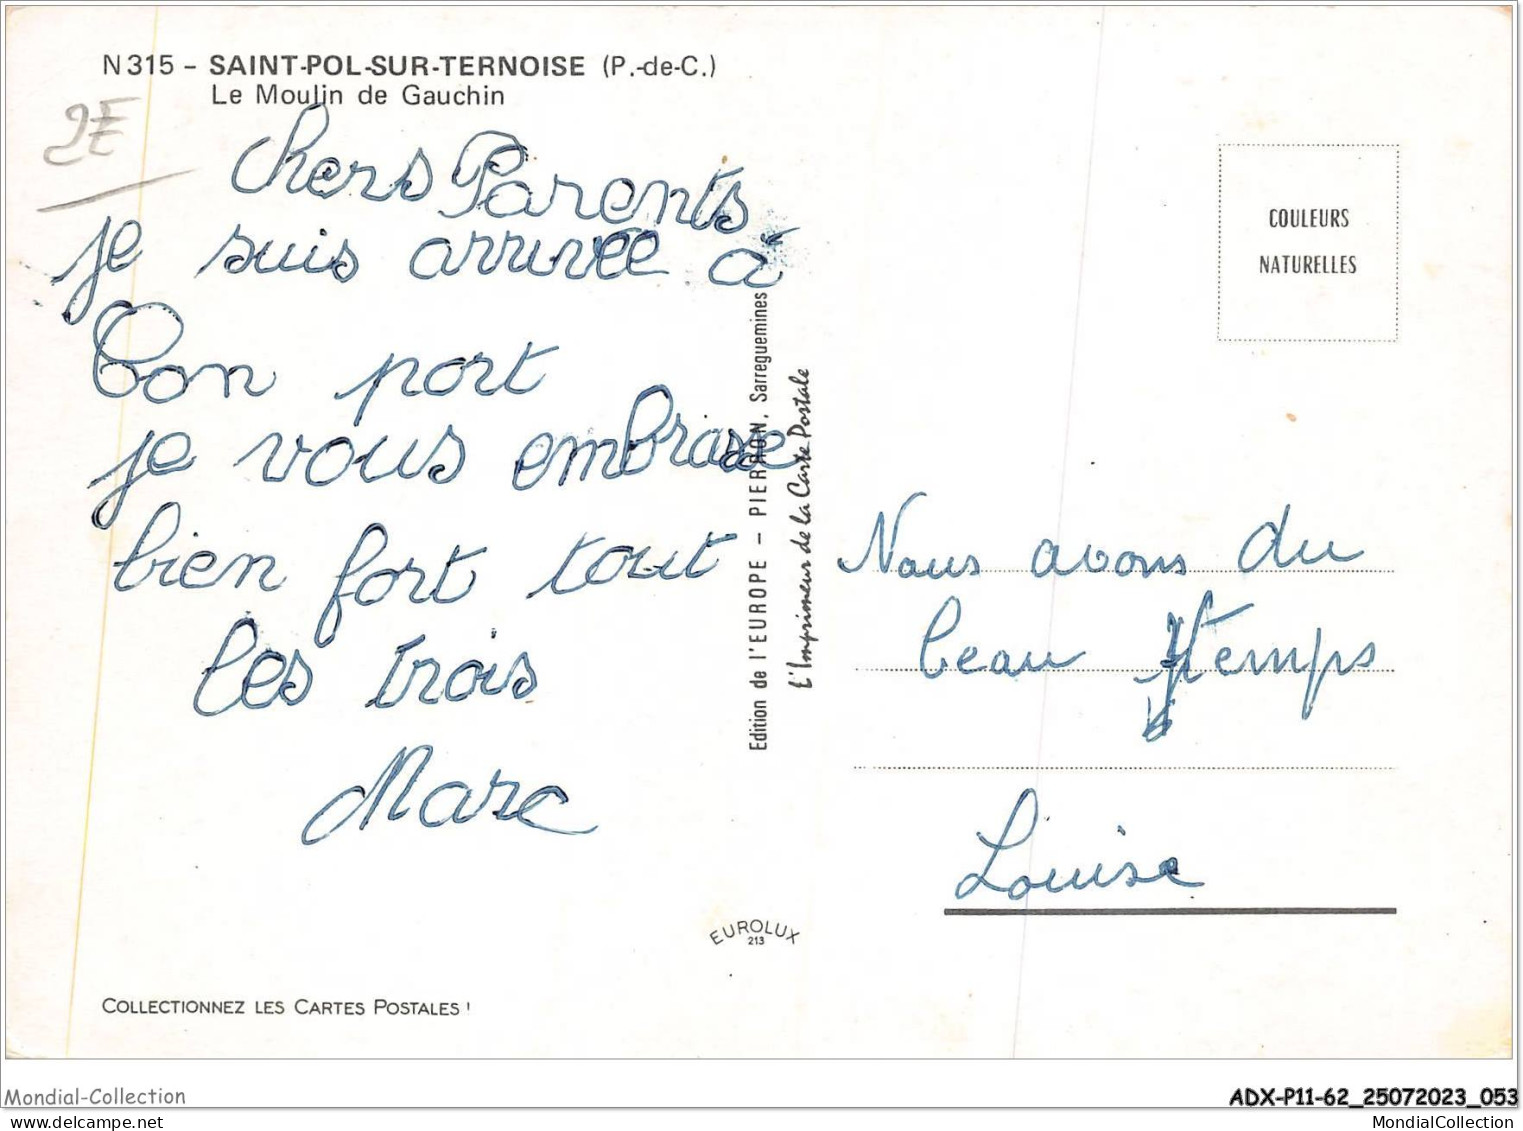 N 315 - SAINT-POL-SUR-TERNOISE (P.-de-C.)
Le Moulin de Gauchin
2E
Chers Parents
je suis arrivée à
bon port
je vous embrasse
bien fort tout
les trois
Marc
Edition de l'EUROPE - PIERRON, Sarreguemines
L'Imprimeur de la Carte Postale
COULEURS
NATURELLES
Nous avons du
beau temps
Louise
EUROLUX
213
COLLECTIONNEZ LES CARTES POSTALES !
Mondial-Collection
ADX-P11-62_25072023_053
MondialCollection